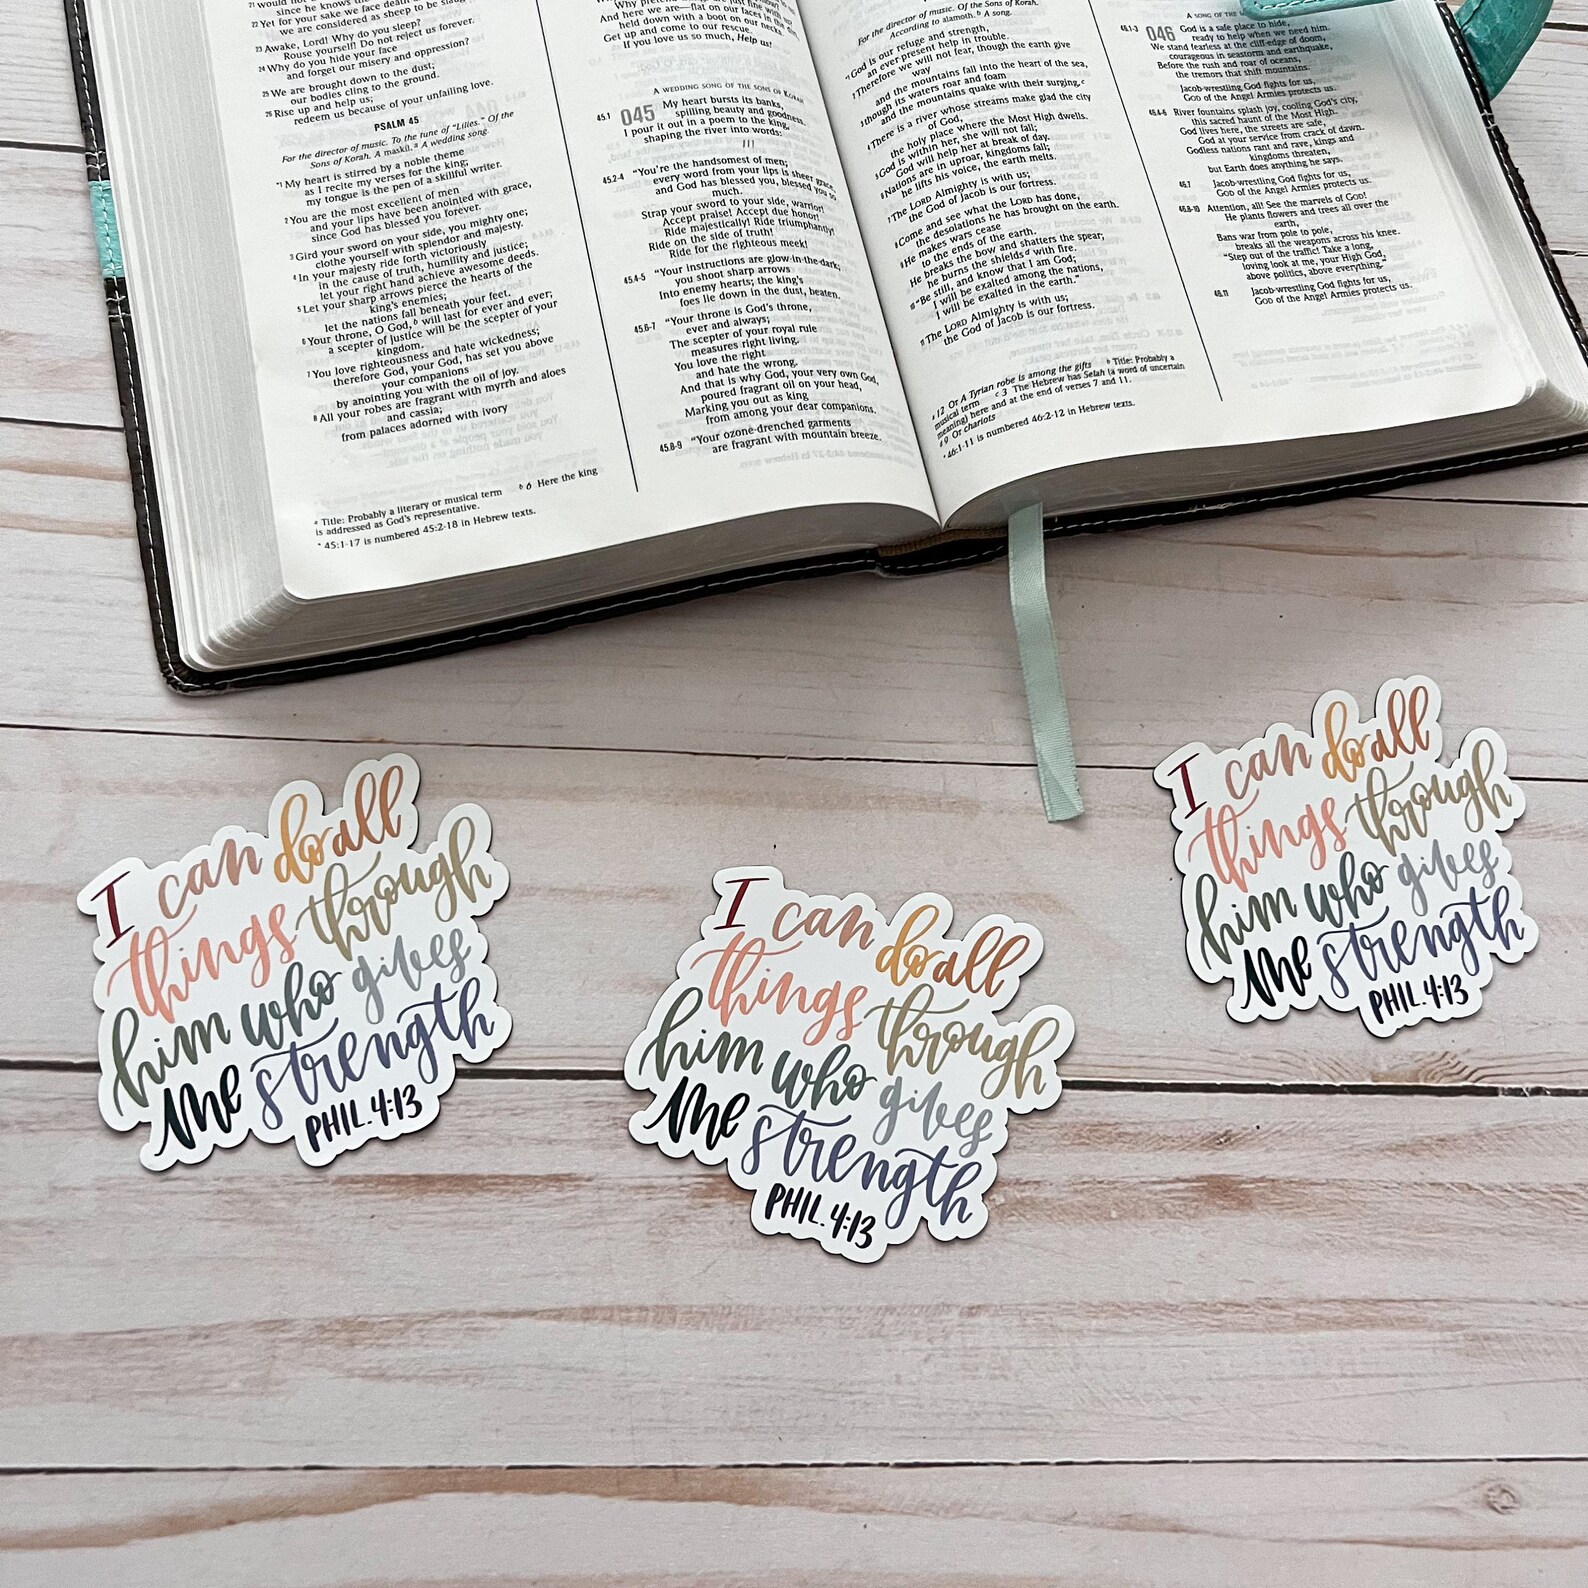 since he knows the
22 Yet for your sake we face death all
we are considered as sheep to be slaug
23 Awake, Lord! Why do you sleep?
Rouse yourself! Do not reject us forever.
24 Why do you hide your face
and forget our misery and oppression?
25 We are brought down to the dust;
our bodies cling to the ground.
26 Rise up and help us;
redeem us because of your unfailing love.
PSALM 45
For the director of music. To the tune of "Lilies." Of the
Sons of Korah. A maskil.a A wedding song.
*1 My heart is stirred by a noble theme
as I recite my verses for the king;
my tongue is the pen of a skillful writer.
2 You are the most excellent of men
and your lips have been anointed with grace,
since God has blessed you forever.
3 Gird your sword on your side, you mighty one;
clothe yourself with splendor and majesty.
4 In your majesty ride forth victoriously
in the cause of truth, humility and justice;
let your right hand achieve awesome deeds.
5 Let your sharp arrows pierce the hearts of the
king's enemies;
let the nations fall beneath your feet.
6 Your throne, O God,b will last for ever and ever;
a scepter of justice will be the scepter of your
kingdom.
7 You love righteousness and hate wickedness;
therefore God, your God, has set you above
your companions
by anointing you with the oil of joy.
8 All your robes are fragrant with myrrh and aloes
and cassia;
from palaces adorned with ivory
a Title: Probably a literary or musical term b 6 Here the king
is addressed as God's representative.
* 45:1-17 is numbered 45:2-18 in Hebrew texts.
And here we are—flat on our faces in the
held down with a boot on our necks.
Get up and come to our rescue.
If you love us so much, Help us!
A WEDDING SONG OF THE SONS OF KORAH
45.1 045 My heart bursts its banks,
spilling beauty and goodness.
I pour it out in a poem to the king,
shaping the river into words:
45.2-4 "You're the handsomest of men;
every word from your lips is sheer grace,
and God has blessed you, blessed you so
much.
Strap your sword to your side, warrior!
Accept praise! Accept due honor!
Ride majestically! Ride triumphantly!
Ride on the side of truth!
Ride for the righteous meek!
45.4-5 "Your instructions are glow-in-the-dark;
you shoot sharp arrows
Into enemy hearts; the king's
foes lie down in the dust, beaten.
45.6-7 "Your throne is God's throne,
ever and always;
The scepter of your royal rule
measures right living.
You love the right
and hate the wrong.
And that is why God, your very own God,
poured fragrant oil on your head,
Marking you out as king
from among your dear companions.
45.8-9 "Your ozone-drenched garments
are fragrant with mountain breeze.
For the director of music. Of the Sons of Korah.
According to alamoth.b A song.
*1 God is our refuge and strength,
an ever present help in trouble.
2 Therefore we will not fear, though the earth give
way
and the mountains fall into the heart of the sea,
3 though its waters roar and foam
and the mountains quake with their surging.c
4 There is a river whose streams make glad the city
of God,
the holy place where the Most High dwells.
5 God is within her, she will not fall;
God will help her at break of day.
6 Nations are in uproar, kingdoms fall;
he lifts his voice, the earth melts.
7 The LORD Almighty is with us;
the God of Jacob is our fortress.
8 Come and see what the LORD has done,
the desolations he has brought on the earth.
9 He makes wars cease
to the ends of the earth.
He breaks the bow and shatters the spear;
he burns the shields d with fire.
10 "Be still, and know that I am God;
I will be exalted among the nations,
I will be exalted in the earth."
11 The LORD Almighty is with us;
the God of Jacob is our fortress.
a 12 Or A Tyrian robe is among the gifts b Title: Probably a
musical term c 3 The Hebrew has Selah (a word of uncertain
meaning) here and at the end of verses 7 and 11.
d 9 Or chariots
* 46:1-11 is numbered 46:2-12 in Hebrew texts.
A SONG OF THE
46.1-3 046 God is a safe place to hide,
ready to help when we need him.
We stand fearless at the cliff-edge of doom,
courageous in seastorm and earthquake,
Before the rush and roar of oceans,
the tremors that shift mountains.
Jacob-wrestling God fights for us,
GOD of the Angel Armies protects us.
46.4-6 River fountains splash joy, cooling God's city,
this sacred haunt of the Most High.
God lives here, the streets are safe,
God at your service from crack of dawn.
Godless nations rant and rave, kings and
kingdoms threaten,
but Earth does anything he says.
46.7 Jacob-wrestling God fights for us,
GOD of the Angel Armies protects us.
46.8-10 Attention, all! See the marvels of GOD!
He plants flowers and trees all over the
earth,
Bans war from pole to pole,
breaks all the weapons across his knee.
"Step out of the traffic! Take a long,
loving look at me, your High God,
above politics, above everything."
46.11 Jacob-wrestling God fights for us,
GOD of the Angel Armies protects us.
I can do all
things through
him who gives
me strength
PHIL. 4:13
I can do all
things through
him who gives
me strength
PHIL. 4:13
I can do all
things through
him who gives
me strength
PHIL. 4:13